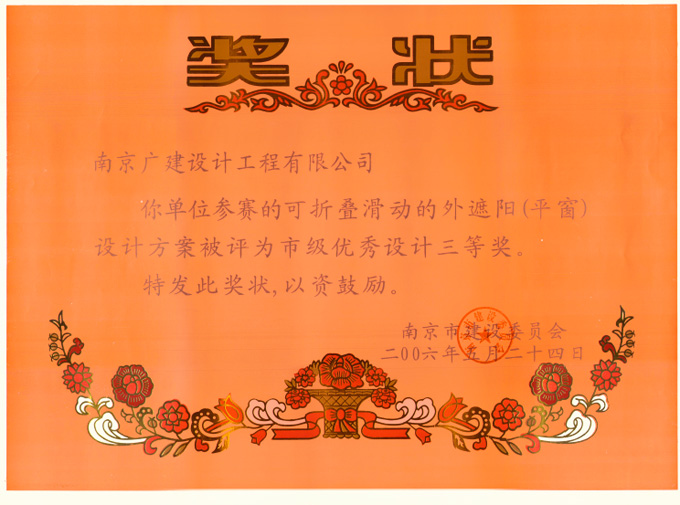 奖状
南京广建设计工程有限公司
你单位参赛的可折叠滑动的外遮阳(平窗)
设计方案被评为市级优秀设计三等奖。
特发此奖状,以资鼓励。
南京市建设委员会
二00六年五月二十四日